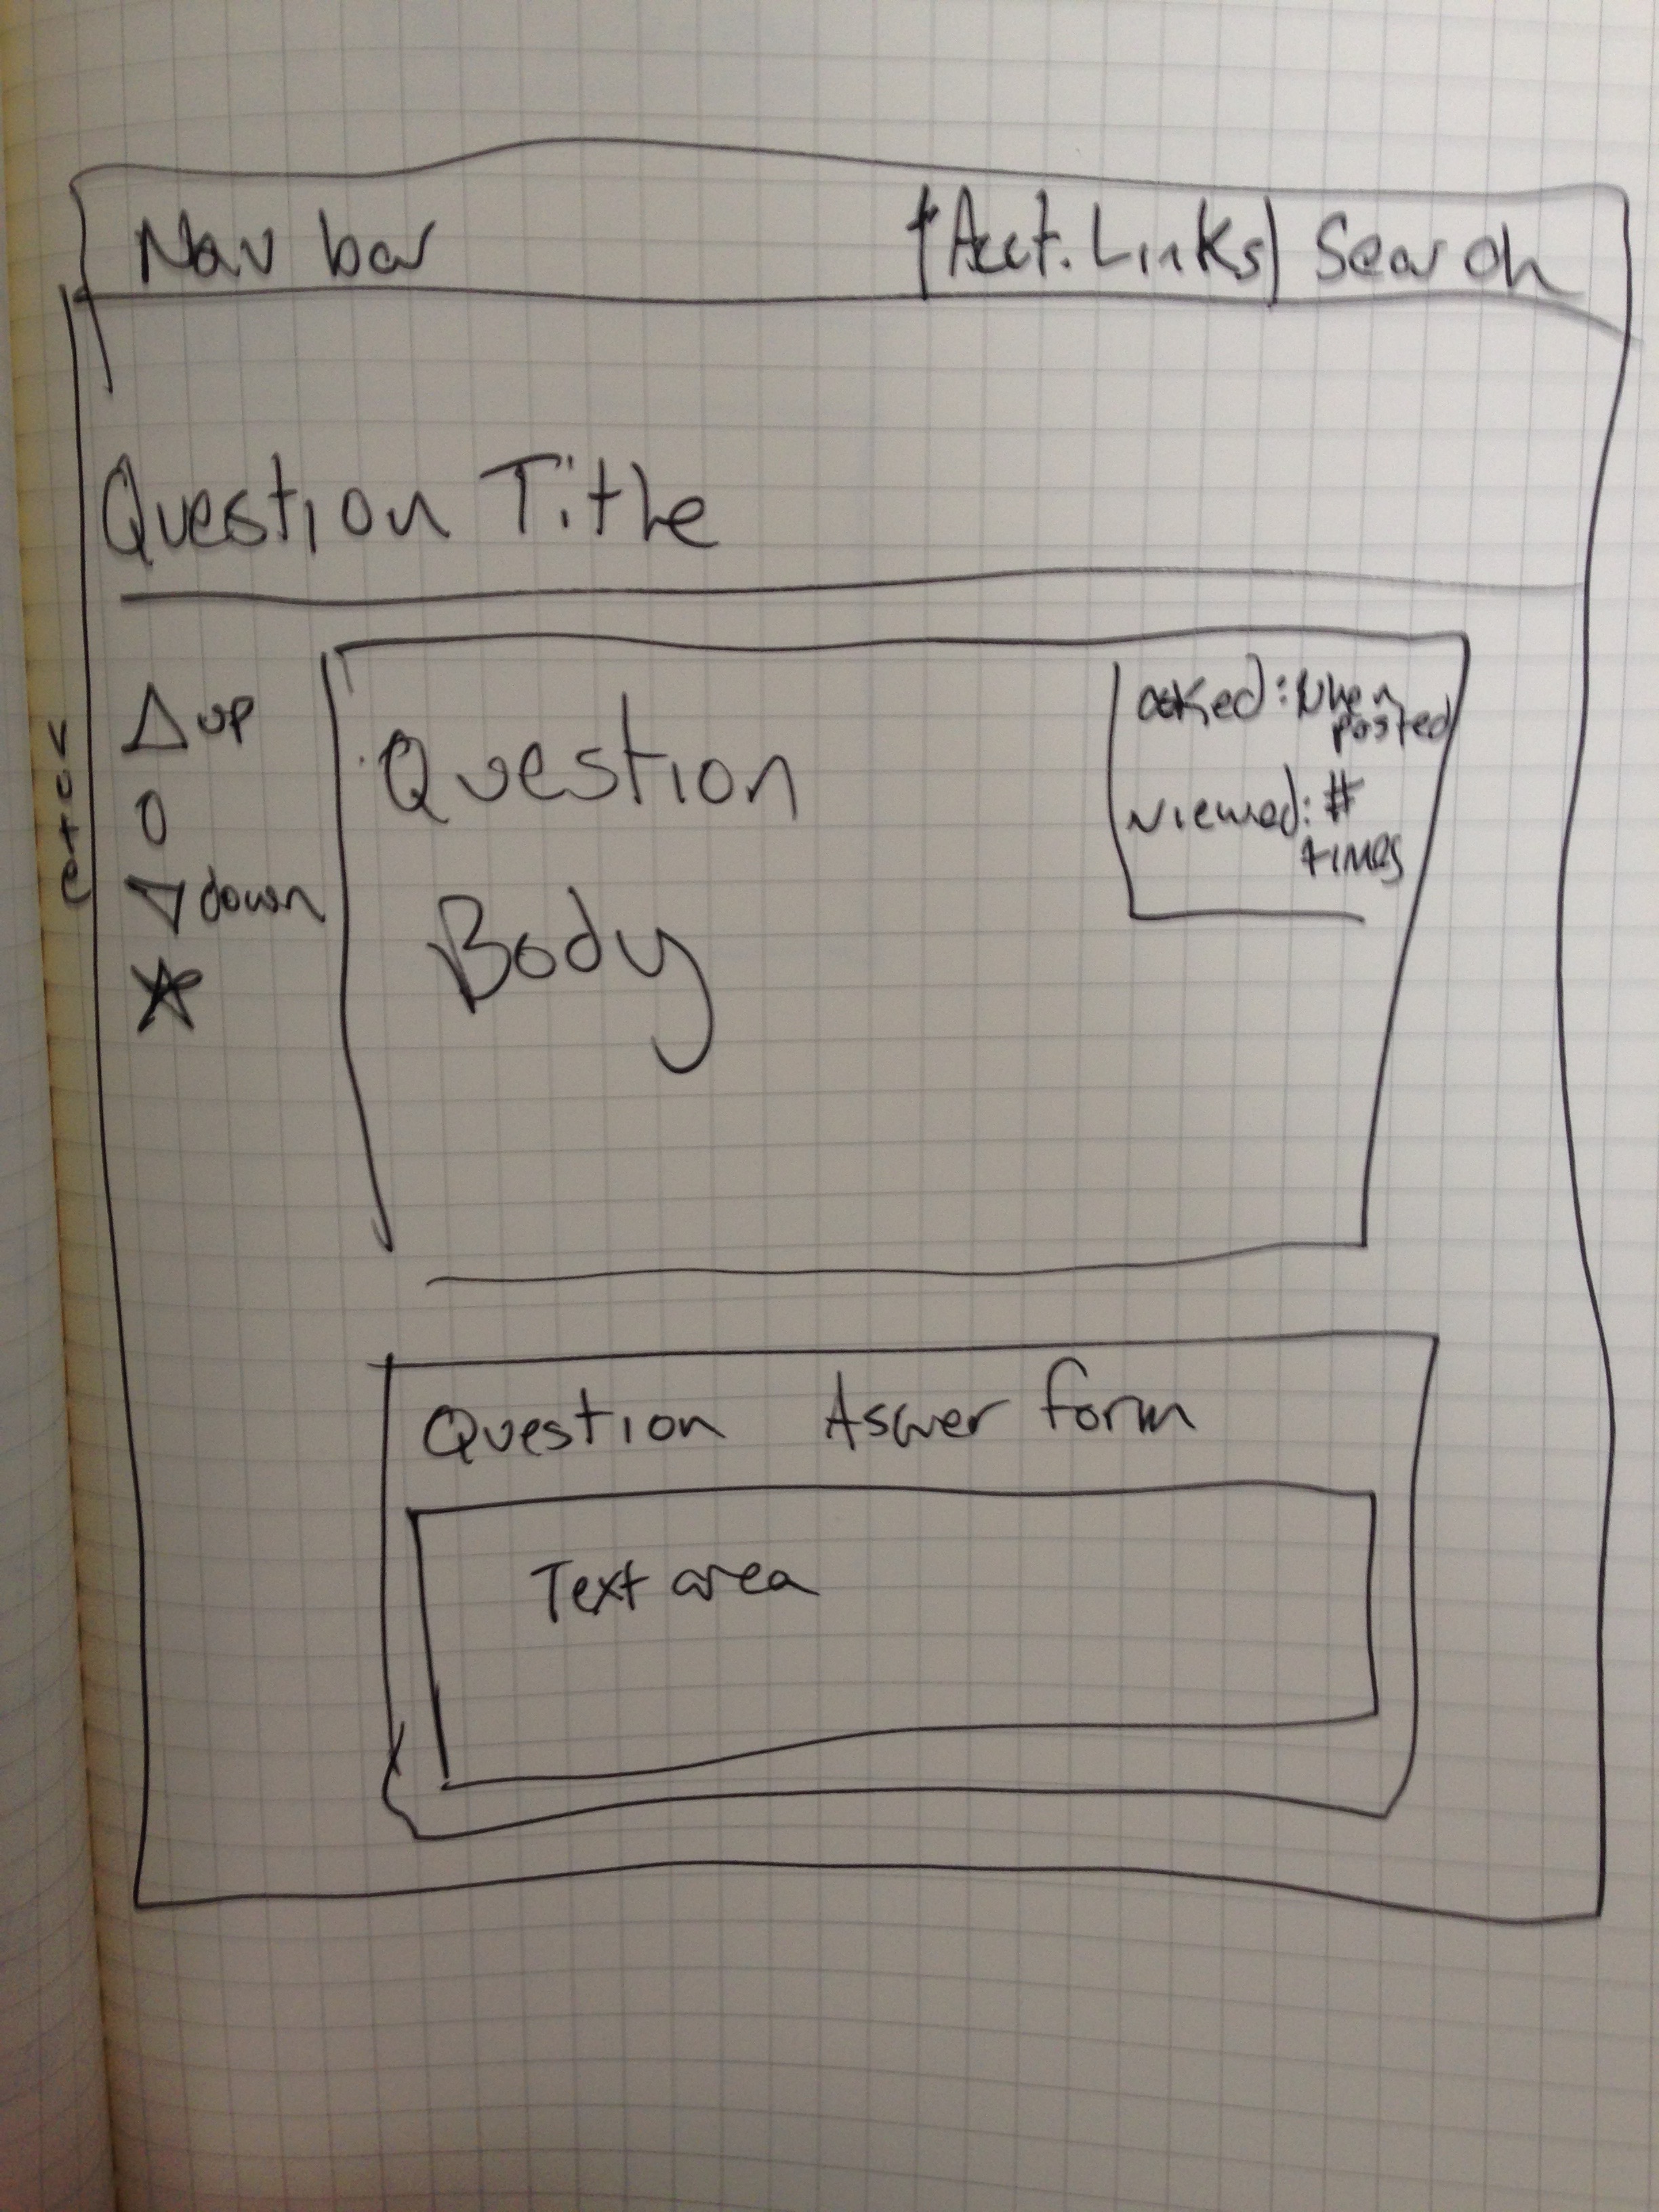 Nav bar |Acct. Links| Search
Question Title
up
0
down
Question
Body
asked: When
posted
viewed: #
times
Question Aswer form
Text area